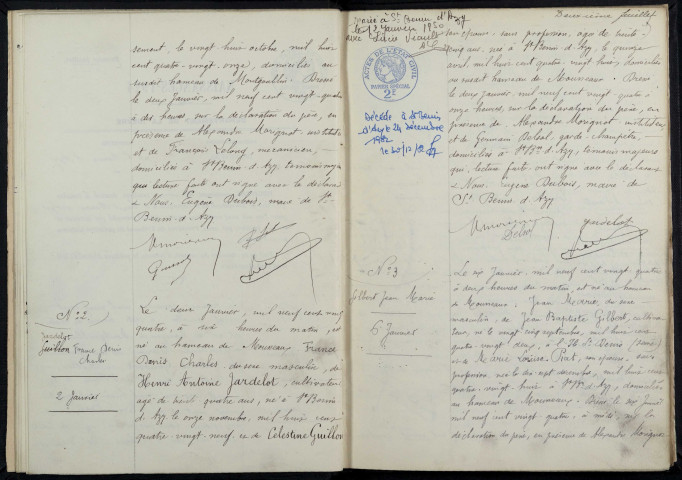 sement, le vingt huit octobre, mil huit
cent quatre-vingt-onze, domiciliés au
susdit hameau de Montgoublin. Dressé
le deux Janvier, mil neuf cent vingt-quatre
à dix heures, sur la déclaration du père, en
présence de Alexandre Morignot instituteur
et de François Lelong, mécanicien,
domiciliés à St Benin d'Azy témoins majeurs
qui, lecture faite ont signé avec le déclarant
& Nous, Eugène Dubois, maire de St-
Benin d'Azy
No 2
Jardelot
Guillon France Denis
Charles
2 Janvier
Le deux Janvier, mil neuf cent vingt
quatre, à six heures du matin, est
né au hameau de Mouveaux France
Denis Charles du sexe masculin, de
Henri Antoine Jardelot, cultivateur
agé de trente quatre ans, né à St Benin
d'Azy le onze novembre, mil huit cent
quatre-vingt-neuf et de Célestine Guillon
Deuxième feuillet
Marié à St Benin d'Azy
le 12 Janvier 1950
avec
ACTES DE L'ETAT CIVIL
PAPIER SPECIAL
2F
Décédé à St Benin
d'Azy le 24 Décembre
1982
le 30/12/82
son épouse, sans profession, agée de trente
cinq ans, née à St Benin d'Azy le quinze
avril, mil huit cent quatre vingt huit, domiciliés
au susdit hameau de Mouveaux. Dressé
le deux janvier, mil neuf cent vingt quatre à
onze heures, sur la déclaration du père, en
présence de Alexandre Morignot instituteur,
et de Germain Delsol, garde-champêtre,
domiciliés à St Benin d'Azy, témoins majeurs
qui, lecture faite ont signé avec le déclarant
& Nous, Eugène Dubois, maire de
St. Benin d'Azy
Jardelot
Delsol
No 3
Gilbert Jean Marie
6 Janvier
Le six Janvier, mil neuf cent vingt quatre
à deux heures du matin, est né au hameau
de Mouveaux, Jean Marie, du sexe
masculin, de Jean Baptiste Gilbert, cultiva-
teur, né le vingt cinq septembre, mil huit cent
quatre vingt deux, à
et de Marie Louise Prut, son épouse, sans
profession, née le dix sept décembre, mil huit cent
quatre-vingt-huit à St Benin d'Azy, domiciliés
au hameau de Mouveaux. Dressé le six Janvier
mil neuf cent vingt quatre, à midi, sur la
déclaration du père, en présence de Alexandre Morignot